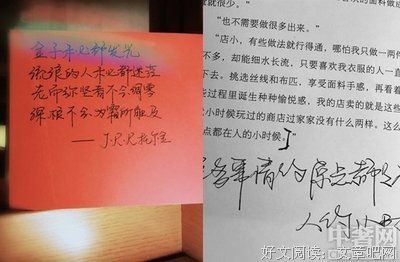 金子未必都发光
流浪的人未必都迷途
老而弥坚者不会凋零
深根不会为霜所触及
——J.R.R托尔金
就很少。”
“也不需要做很多出来。”
“店小，有些做法就行得通，哪怕我只做一两
不多，却能细水长流，只要喜欢我衣服的人一直
下去。挑选丝线和布匹，享受面料手感，再看着
些过程里诞生种种愉悦感，我的店卖的就是这些
小时候玩过的商店过家家没有什么两样。这么
点都在人的小时候。
事情的原点都
人的小
中奢网
好文阅读：文章吧网